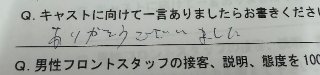 Q. キャストに向けて一言ありましたらお書きくださ
ありがとうございました
Q. 男性フロントスタッフの接客、説明、態度を100